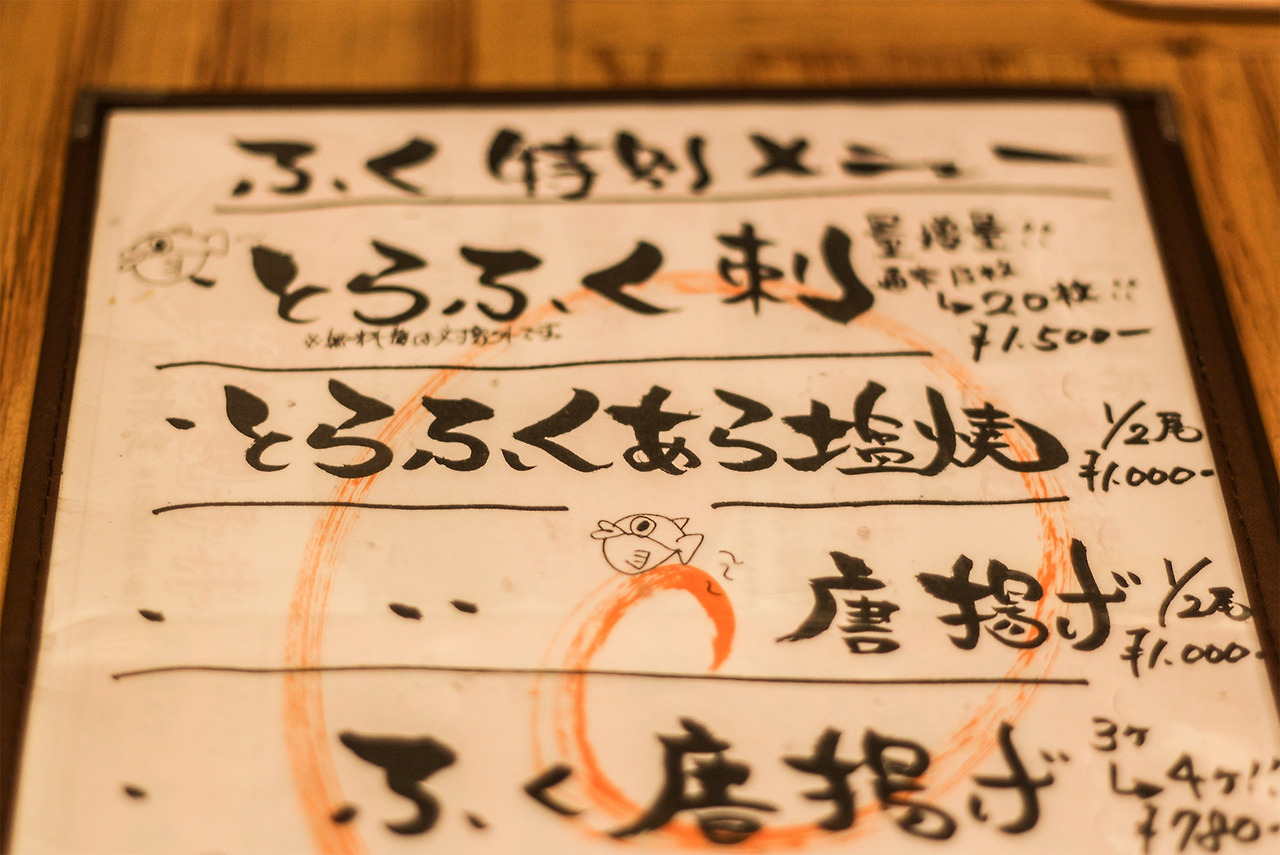 ふく 特別メニュー
とらふく刺
量増量!!
通常15枚
↳20枚!!
¥1.500ー
※無料券は対象外です。
・とらふくあら塩焼
1/2尾
¥1.000-
・ 〃 唐揚げ
1/2尾
¥1.000-
・ふく唐揚げ
3ケ
↳4ケ!!
¥780-